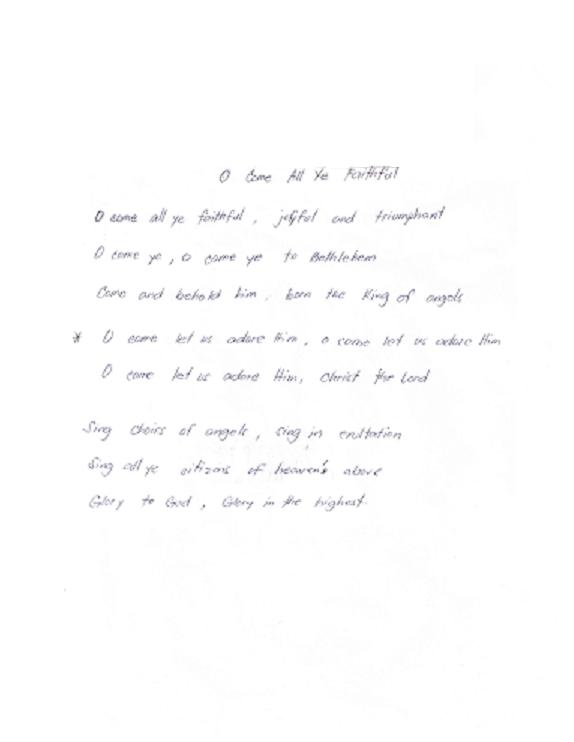 O Come All Ye Faithful
O come all ye faithful, joyful and triumphant
O come ye, o come ye to Bethlehem
Come and behold him, born the King of angels
* O come let us adore Him, o come let us adore Him
O come let us adore Him, Christ the Lord
Sing choirs of angels, sing in exultation
Sing all ye citizens of heaven's above
Glory to God, Glory in the highest.